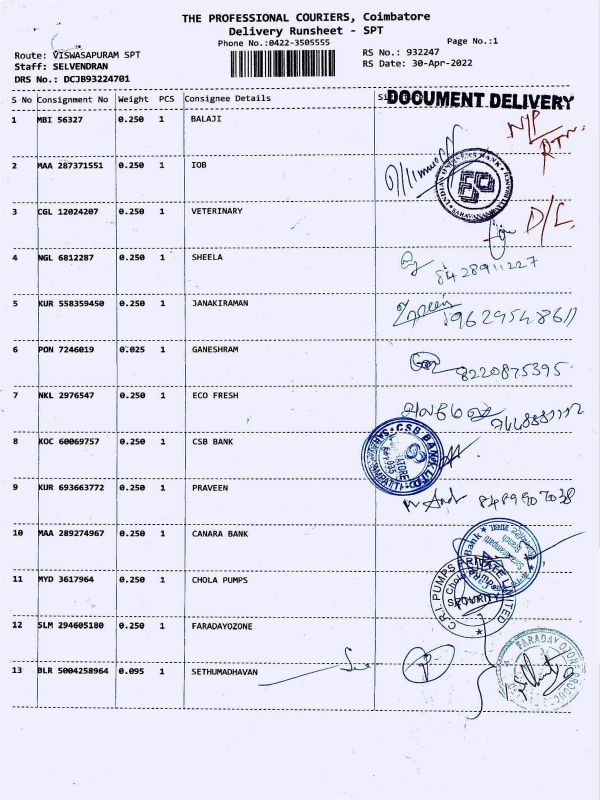 THE PROFESSIONAL COURIERS, Coimbatore
Delivery Runsheet - SPT
Phone No.:0422-3505555
Page No.:1
Route: VISWASAPURAM SPT
RS No.: 932247
Staff: SELVENDRAN
RS Date: 30-Apr-2022
DRS No.: DCJB93224701
S No Consignment No Weight PCS Consignee Details
DOCUMENT DELIVERY
1 MBI 56327 0.250 1 BALAJI
N/P
RTN.
2 MAA 287371551 0.250 1 IOB
INDIAN OVERSEAS BANK
3 CGL 12024207 0.250 1 VETERINARY
D/L.
4 NGL 6812287 0.250 1 SHEELA
8428911227
5 KUR 558359450 0.250 1 JANAKIRAMAN
9629548611
6 PON 7246019 0.025 1 GANESHRAM
8220875395
7 NKL 2976547 0.250 1 ECO FRESH
8 KOC 60069757 0.250 1 CSB BANK
CSB BANK LTD
9 KUR 693663772 0.250 1 PRAVEEN
8489907038
10 MAA 289274967 0.250 1 CANARA BANK
11 MYD 3617964 0.250 1 CHOLA PUMPS
C.R.I. PUMPS PRIVATE LIMITED
Chola Pumps
SECURITY
12 SLM 294605180 0.250 1 FARADAYOZONE
FARADAY OZONE PRODUCTS
13 BLR 5004258964 0.095 1 SETHUMADHAVAN